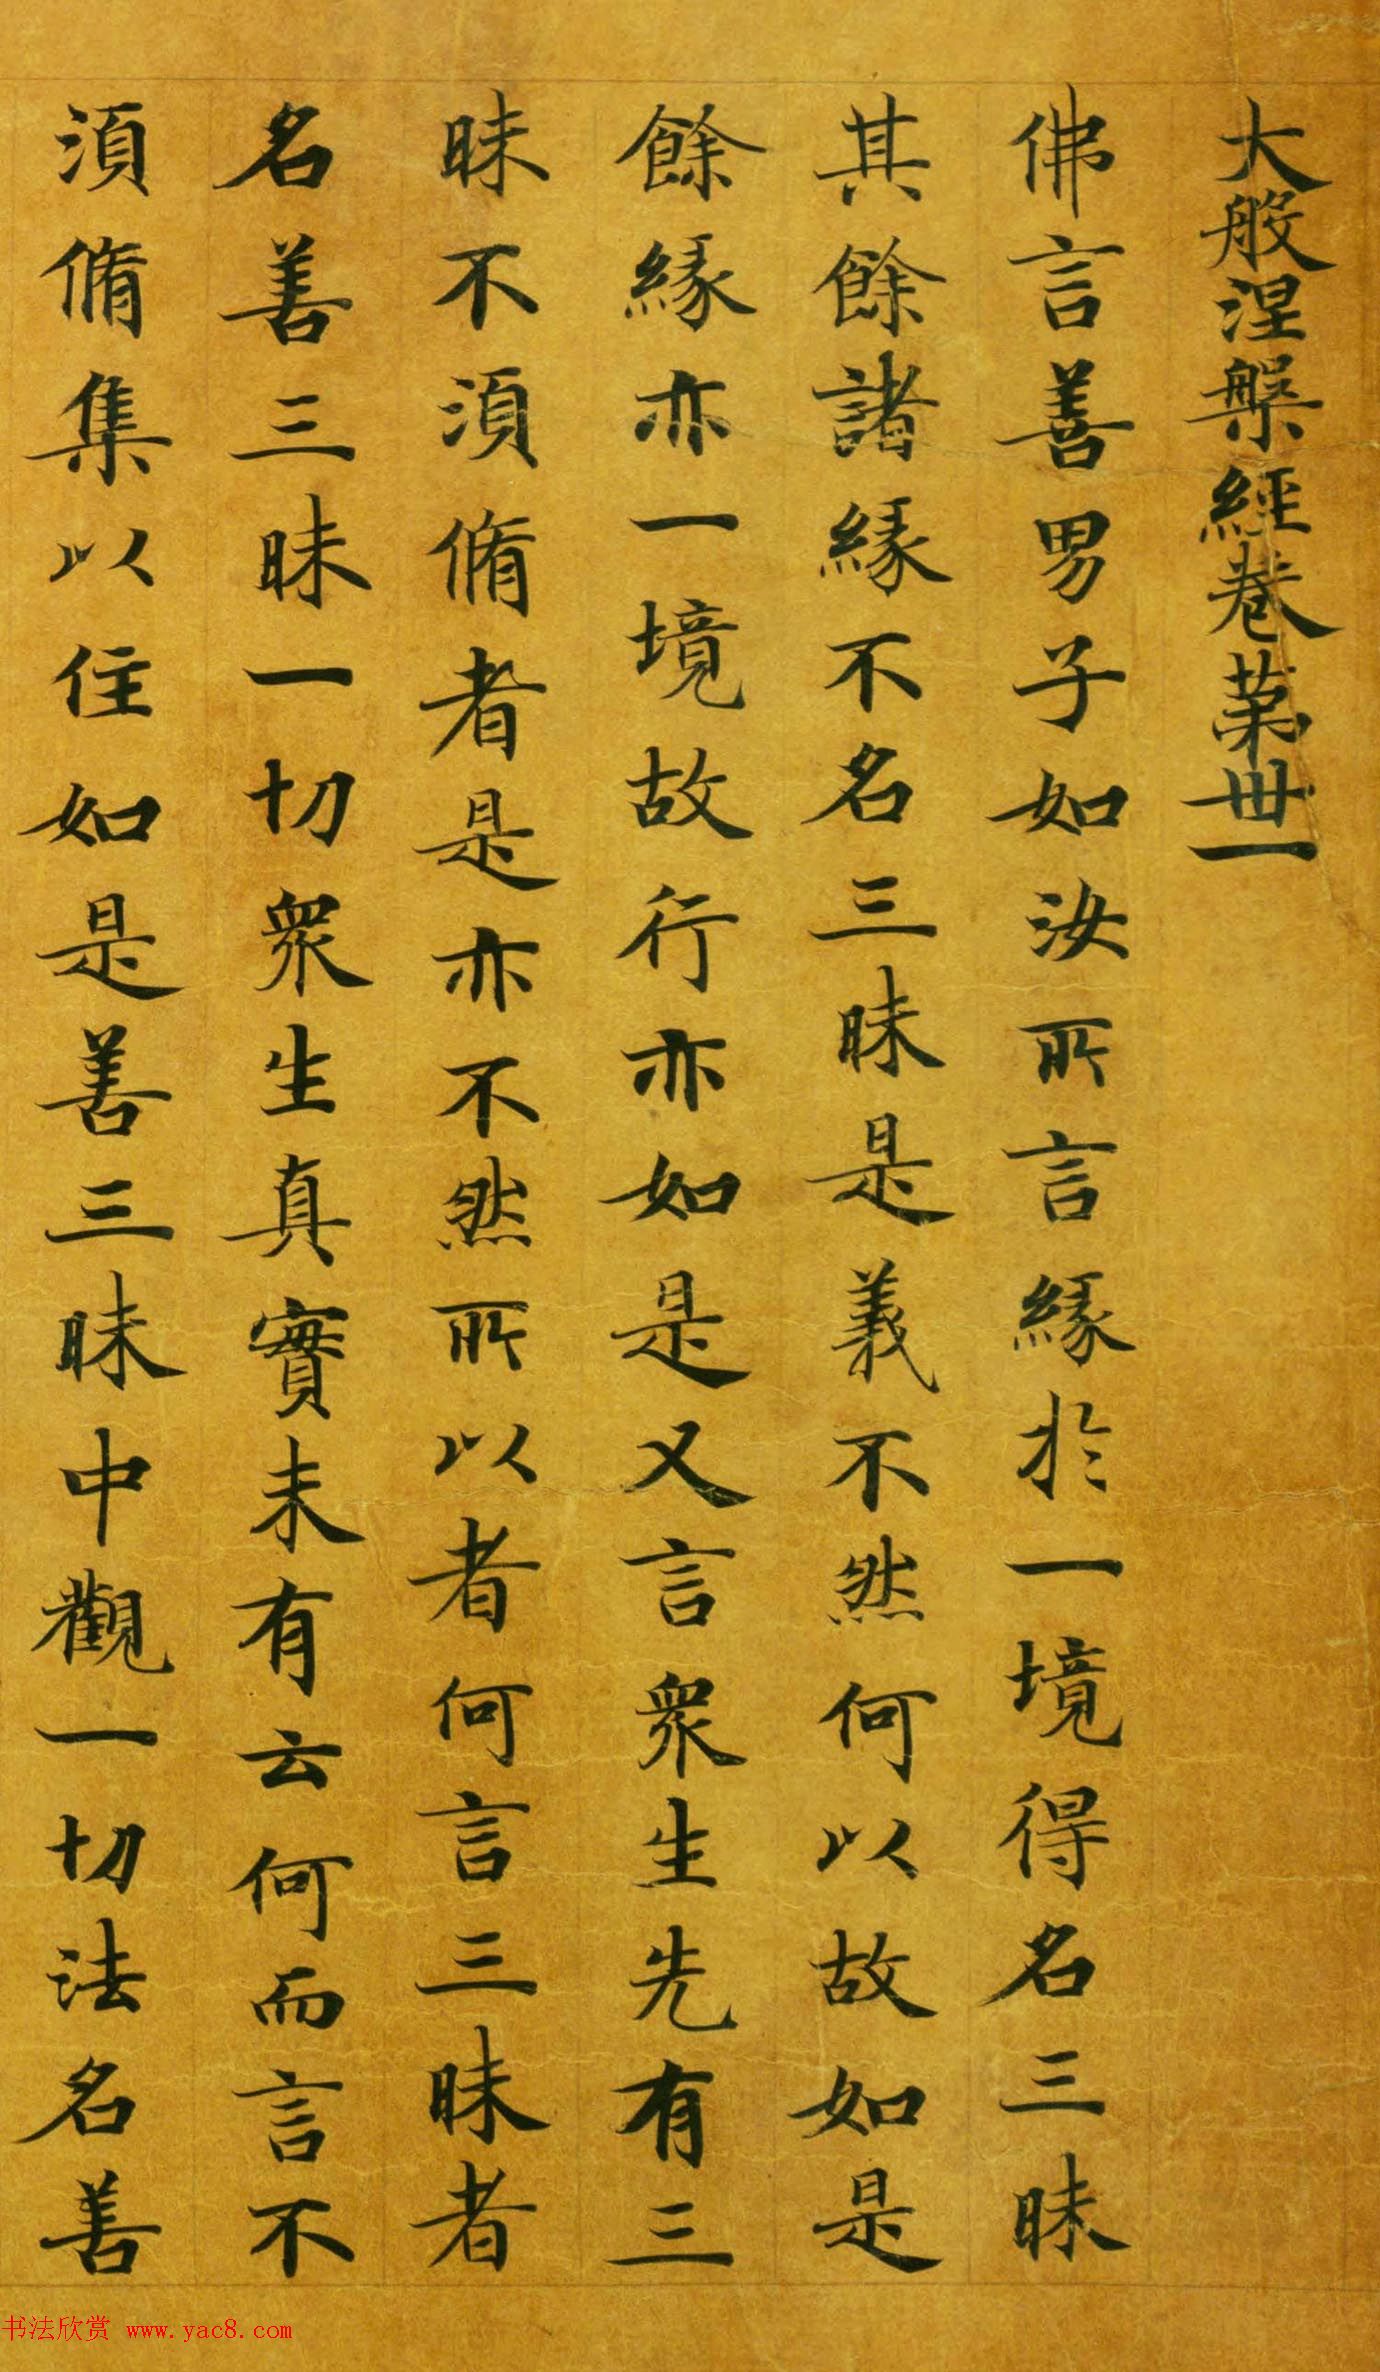 大般涅槃經卷苐卅一
佛言善男子如汝所言緣於一境得名三昧
其餘諸緣不名三昧是義不然何以故如是
餘緣亦一境故行亦如是又言衆生先有三
昧不湏脩者是亦不然所以者何言三昧者
名善三昧一切衆生真實未有云何而言不
湏脩集以住如是善三昧中觀一切法名善
书法欣赏 www.yac8.com